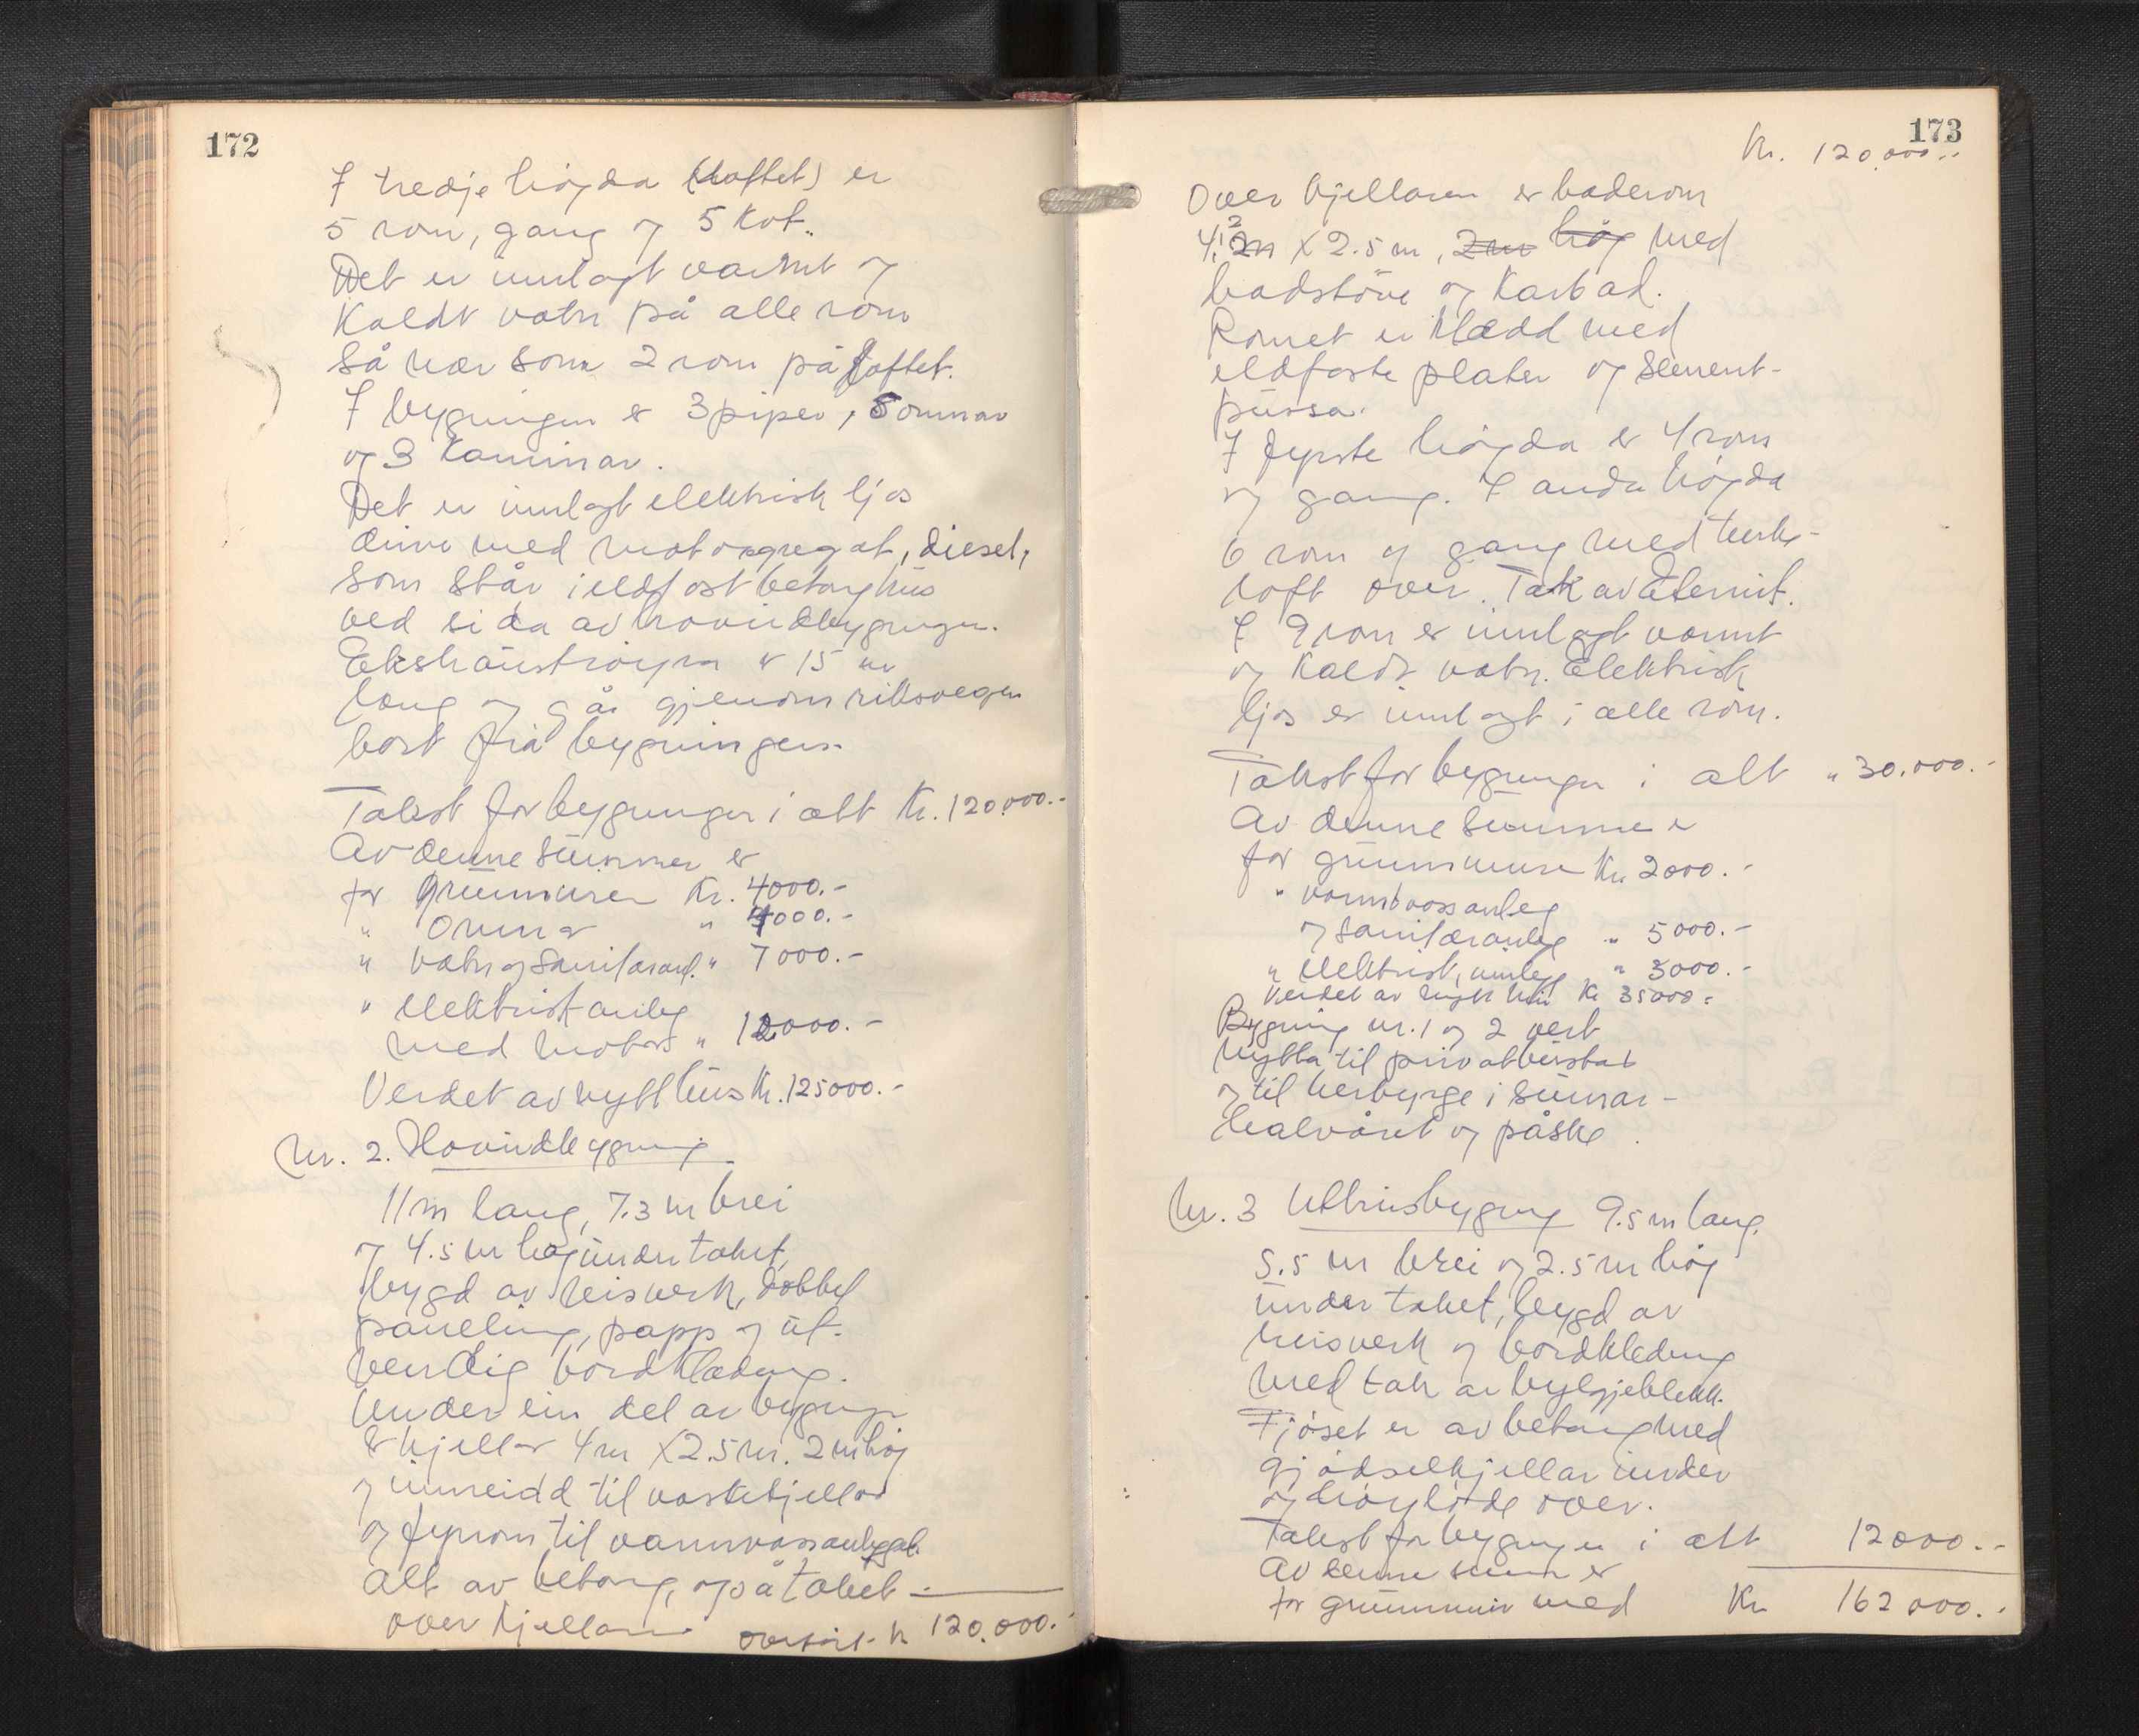 172
I tredje högda (loftet) er
5 rom, gang og 5 kot.
Det er innlagt varmt og
kaldt vatn på alle rom
så nær som 2 rom på loftet.
I bygningen er 3 piper, 5 omnar
og 3 kaminar.
Det er innlagt elektrisk ljos
drive med motoragregat, diesel,
som står i eldfast betonghus
ved sida av hovudbygningen.
Ekshaustrøyra er 15 m
lang og går gjenom riksvegen
bort frå bygningen.
Takst for bygningen i alt Kr. 120.000.-
Av denne summen er
for grunnmuren Kr. 4000.-
" Omnar " 4000.-
" Vatn og sanitæranl. " 7000.-
" elektrisk anleg
med motor " 12000.-
Verdet av nytt hus Kr. 125000.-
Nr. 2. Hovudbygning
11 m lang, 7.3 m brei
og 4.5 m høg under taket,
bygd av reisverk, dobbel
paneling, papp og ut-
vendig bordkledning.
Under ein del av bygningen
er kjellar 4 m x 2.5 m. 2 m høg
og innreidd til vaskekjellar
og fyrrom til varmvassanlegget.
Alt av betong, også taket
over kjellaren overført kr 120.000.-
173
Kr. 120.000.-
Over kjellaren er baderom
4.2 x 2.5 m, 2 m høg med
badstove og karbad.
Romet er kledd med
eldfaste plater og sement-
pussa.
I fyrste högda er 4 rom
og gang. I andre högda
6 rom og gang med turke-
loft over. Tak av Eternit.
I 9 rom er innlagt varmt
og kaldt vatn. Elektrisk
ljos er innlagt i alle rom.
Takst for bygningen i alt " 30.000.-
Av denne summen er
for grunnmuren Kr. 2000.-
" varmtvassanleg
og sanitæranleg " 5000.-
" elektrisk innlegg " 3000.-
Verdet av nytt hus Kr 35000.-
Bygning nr. 1 og 2 vert
nytta til privatbustad
og til herbyrge i sumar-
halvåret og påske.
Nr. 3 Uthusbygning 9.5 m lang,
5.5 m brei og 2.5 m høg
under taket, bygd av
reisverk og bordkledning
med tak av bylgjeblekk.
Fjøset er av betong med
gjødselkjellar under
og høyløde over.
Takst for bygningen i alt 12000.-
Av denne sum er
for grunnmur med Kr 162000.-